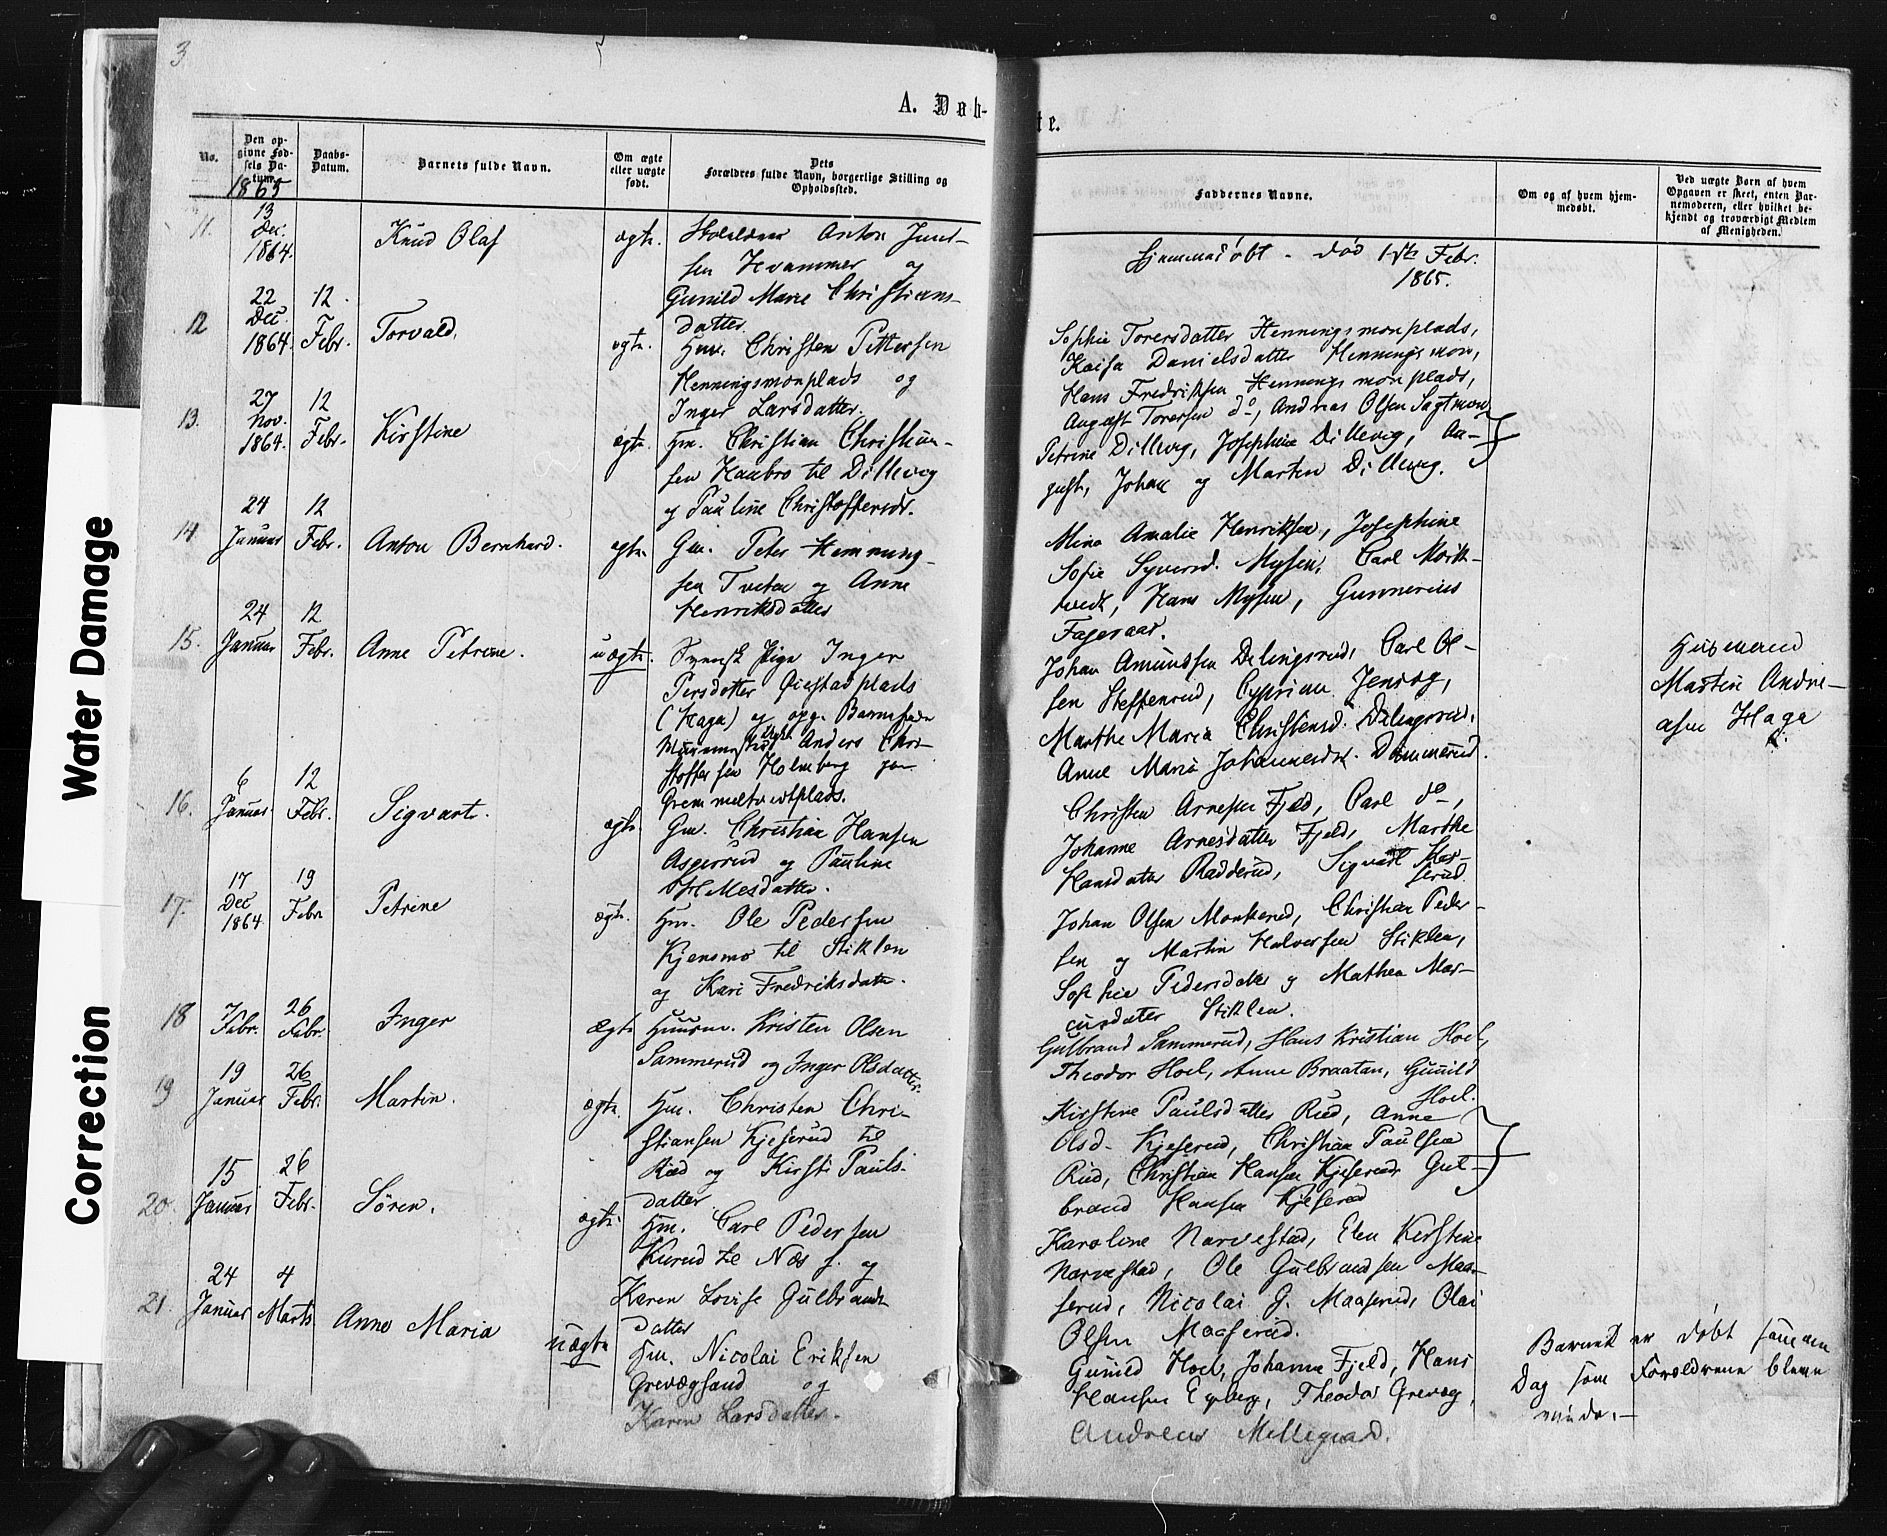 3
A. Døb-
te.
No.
Den op-
givne Fød-
sels Da-
tum.
1865
Daabs-
Datum.
Barnets fulde Navn.
Om ægte
eller uægte
født.
Dets
Forældres fulde Navn, borgerlige Stilling og
Opholdssted.
Faddernes Navne.
Om og af hvem hjem-
medøbt.
Ved uægte Børn af hvem
Opgaven er skeet, enten Bar-
nemoderen, eller hvilket be-
kjendt og troværdigt Medlem
af Menigheden.
11.
13
Dec.
1864.
Knud Olaf
ægte.
Anton
Hvammer og
Gunild Marie Christians-
datter
Hjemmedøbt - død Febr.
1865.
12
22
Dec
1864.
12.
Febr.
Torvald.
ægte.
Hm. Christen Pettersen
Henningsmonplads og
Inger Larsdatter.
Sophie Torersdatter Henningsmonplads,
Kaisa Danielsdatter Henningsmon,
Hans Fredriksen Henningsmonplads,
August Torersen do, Andreas Olsen Sagtmon
13.
27
Nov.
1864.
12
Febr.
Kirstine
ægte.
Hm. Christian Christian-
sen Haabro til Dillevig
og Pauline Christoffersdr.
Petrine Dillevig, Josephine Dillevig, Au-
gust, Johan og Martin Dillevig.
14.
24
Januar
12
Febr.
Anton Bernhard.
ægte.
Gm. Peter Henning-
sen Tveten og Anne
Henriksdatter
Mina Amalie Henriksen, Josephine
Sofie Syversd. Mysen, Carl
Hans Mysen, Gunnerius
Fageraas.
15.
24
Januar
12
Febr.
Anne Petrine.
uægte.
Svensk Pige Inger
Persdatter Øiestadplads
(Haga) og opg. Barnefader
Anders Chri-
stoffersen Holmberg paa
Johan Amundsen Delingsrud, Carl Ol-
sen Steffenrud, Cyprian Jensøg,
Marthe Maria Christensd. Delingsrud,
Anne Maria Johannesdr. Dammerud.
Husmand
Martin Andre-
asen Haga
16.
6
Januar
12
Febr.
Sigvart.
ægte.
Gm. Christian Hansen
Asgerrud og Pauline
Christen Arnesen Fjeld, Carl do,
Johanne Arnesdatter Fjeld, Marthe
Hansdatter Rødderud, Sigvart
17.
17
Dec
1864
19
Febr
Petrine
ægte.
Hm. Ole Pedersen
Kjensmo til Stiklen
og Kari Fredriksdatr.
Johan Olsen Monkerud, Christian Peder-
sen og Martin Halvorsen Stiklen,
Sophie Pedersdatter og Mathea Mar-
cusdatter Stiklen.
18
7
Febr.
26
Febr.
Inger
Ægte
Huusm. Kristen Olsen
Sammerud og Inger Olsdatter.
Gulbrand Sammerud, Hans Kristian Hoel,
Theodor Hoel, Anne Braatan, Gunild
Hoel.
19
19
Januar
26
Febr.
Martin.
ægte.
Hm. Christen Chri-
stiansen Kjeserud til
Rud og Kirsti Pauls-
datter
Kirstine Paulsdatter Rud, Anne
Olsd. Kjeserud, Christian Paulsen
Rud, Christian Hansen Kjeserud, Gul-
brand Hansen Kjeserud
20.
15
Januar
26
Febr.
Søren.
ægte.
Hm. Carl Pedersen
Kurud til Næs og
Karen Lovise Gulbrands-
datter
Karoline Narvestad, Elen Kirstine
Narvestad, Ole Gulbrandsen Maa-
serud, Nicolai G. Maaserud, Olai
Olsen Maaserud.
21.
24
Januar
4
Marts
Anne Maria
uægte
Hm. Nicolai Eriksen
Grevægsand og
Karen Larsdatter.
Gunild Hoel, Johanne Fjeld, Hans
Hansen Egeberg, Theodor Grevæg,
Andreas Millegaard.
Barnet er døbt samme
Dag som Forældrene bleve
viede.
Water Damage
Correction